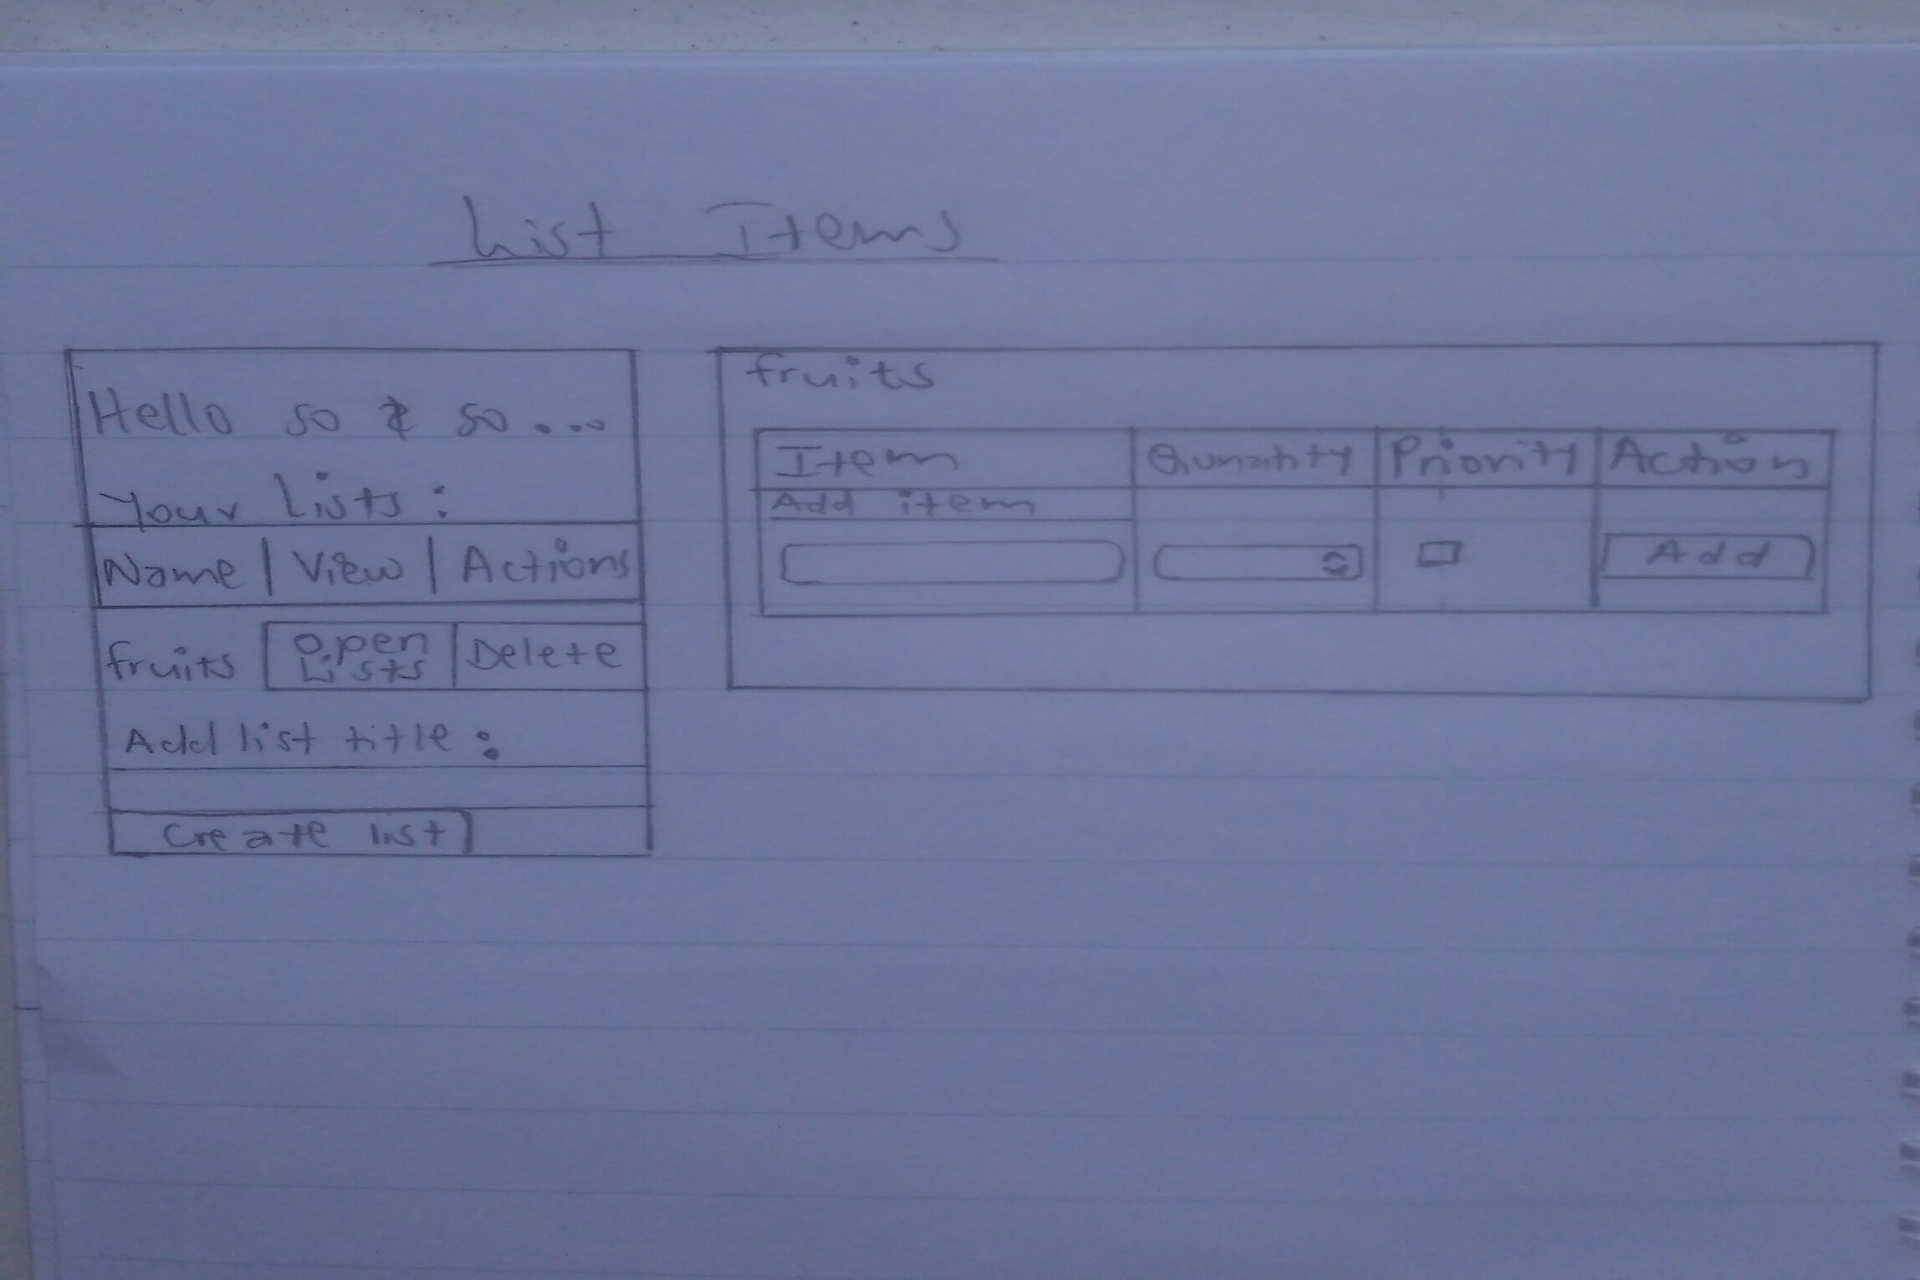 List Items
Hello so & so...
Your Lists:
Name | View | Actions
fruits Open Lists Delete
Add list title:
Create list
fruits
Item Qunatity Priority Action
Add item
Add